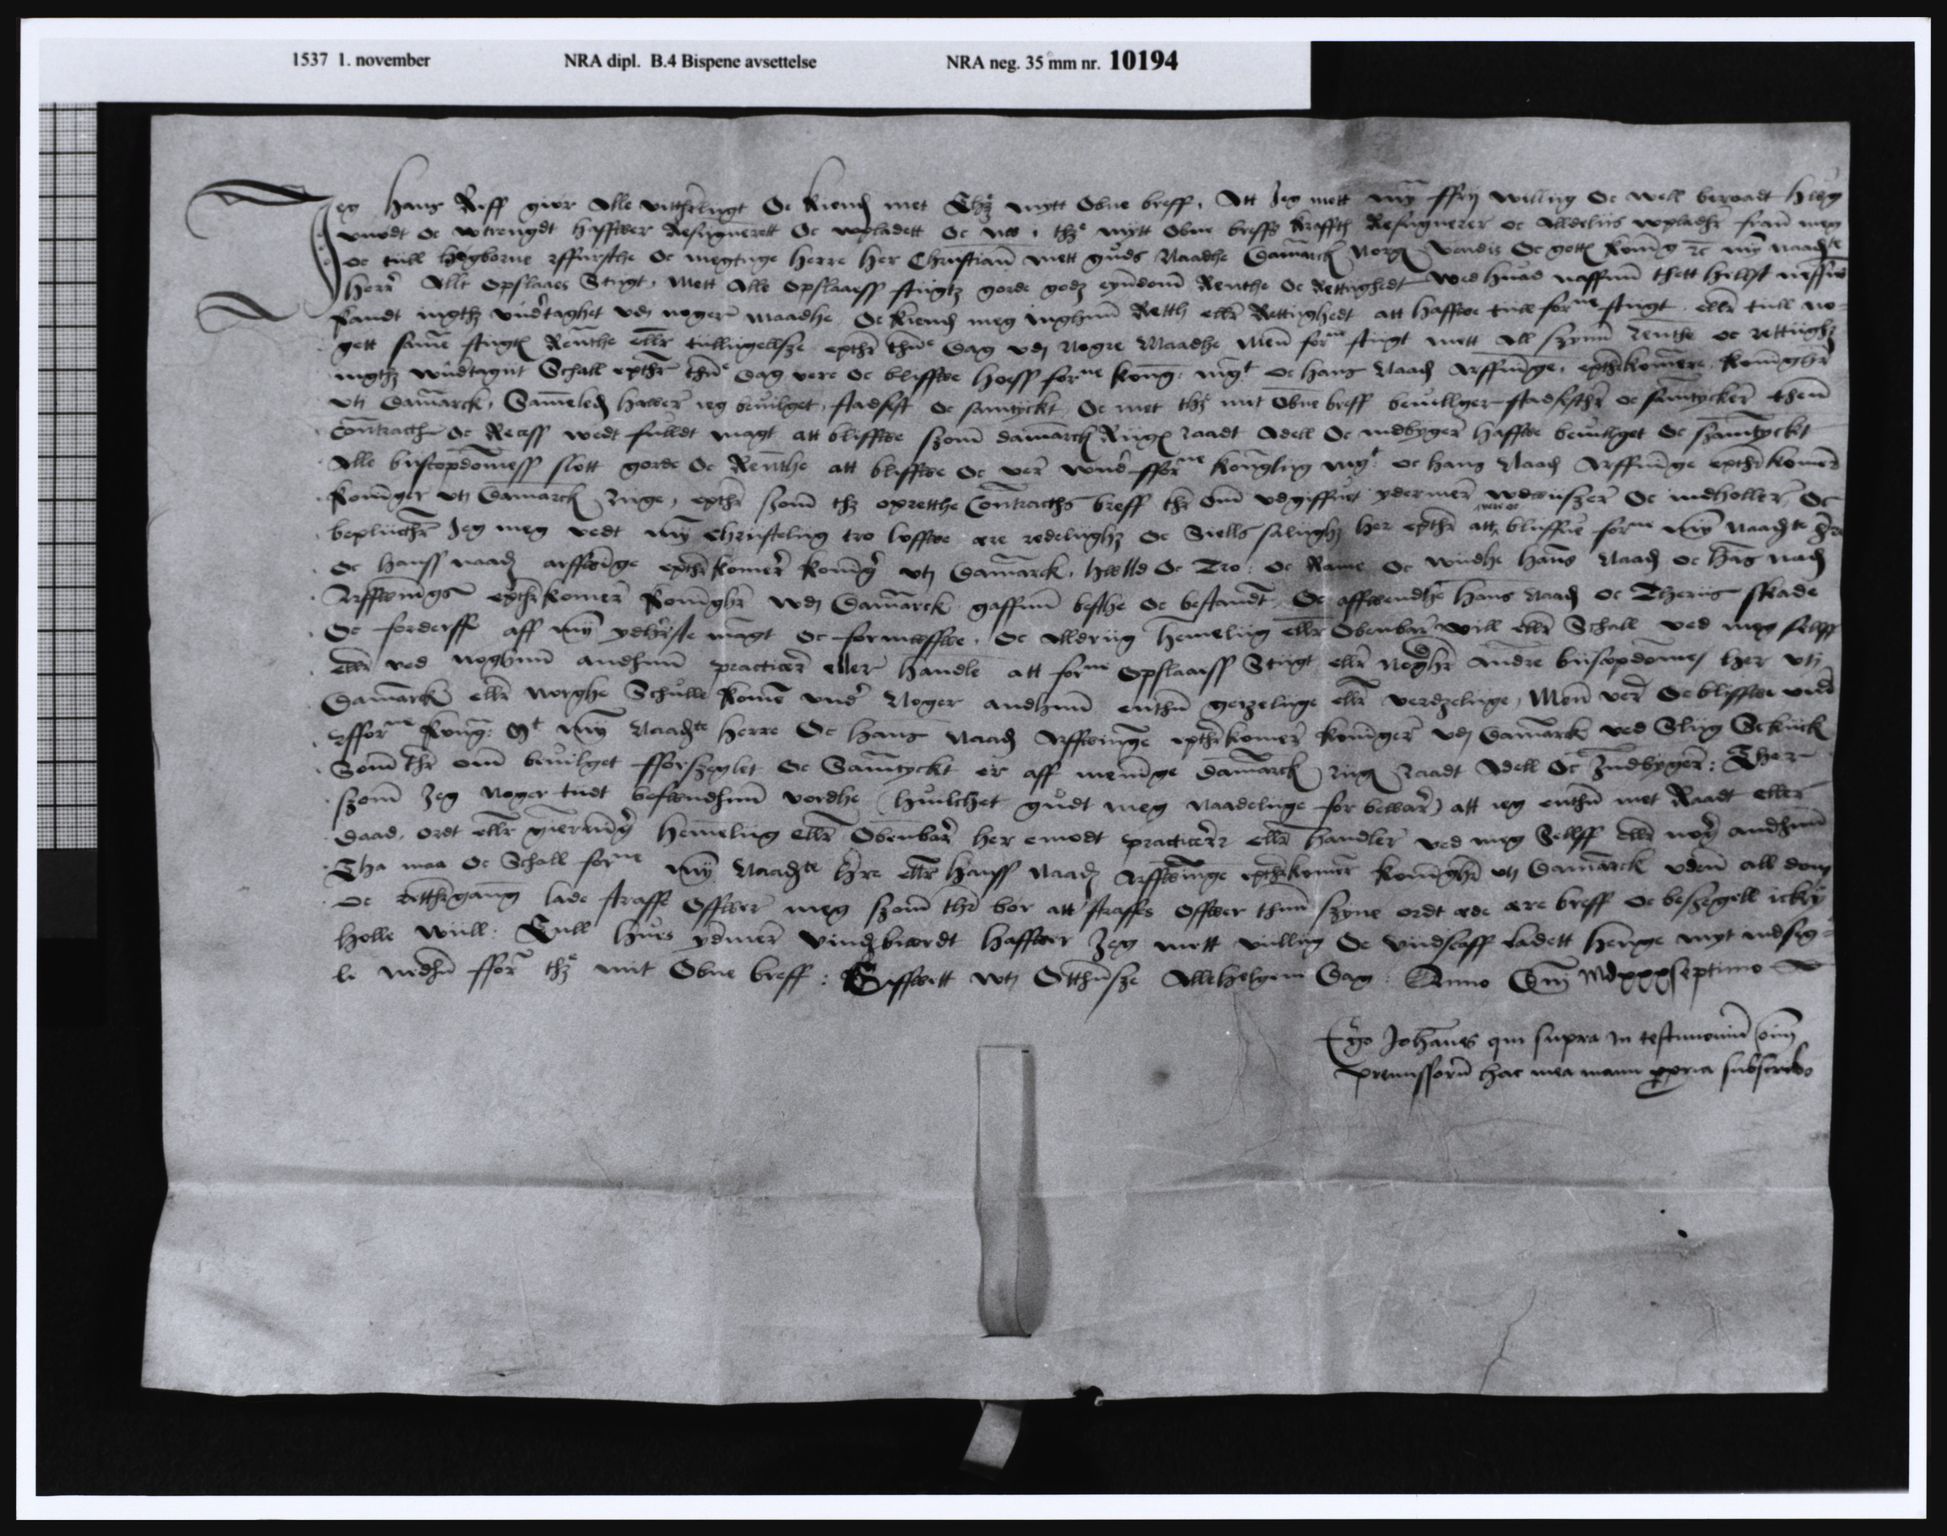 1537 1. november NRA dipl. B.4 Bispene avsettelse NRA neg. 35 mm nr. 10194
Jeg Hans Riff giør Alle vitherligt Oc kiend met Thz mytt Obne breff, Att Jeg mett my ffry williig Oc well beraadt hug
vnødt Oc wtrengdt haffwer Resignerett Oc wpladett Oc nw i thz mytt Obne breffs krafft Resignerer oc Alldeliis wpladhr fran meg
oc till Høgborne ffurste Oc megtige Herre Her Christian mett guds Naadhe Danmarck Norg Vendis Oc gott koning zc my naadte
Herr Allt Opslaaes Stigt, Mett Alle Opslaaess stigtz gorde godz eyndom Renthe Oc Rettighedt wed huad naffnn thett helst
Kandt ingthz vndtaghet vdj noger maadhe, Oc kiend meg inghnn Retth ellr Rettighedt att haffwe till forne stigt ellr till no-
gett samme stigtz Renthe ellr tilligellsze epthr thnne Dag vdj Nogre Maadhe Men forne stigt mett All szynn renthe oc rettiighz
ingthz wndtagnt Schall epthr thnne Dag vere Oc bliffwe hoess forne kong. mgt oc hans Naad Arffuinge, epthrkomere, koninghr
vtj Danmarck, Sammeled hawer ieg beuilget, stadfest Oc samtyckt Oc met thz mit Obne breff beuillger stadfesther oc samtycker then
Contracth Oc Recess wedt fulldt magt att bliffwe szom danmarcks Riigs raadt Adell Oc indbyger haffwe beuillget Oc szamtyckt
Alle biscopdomess slott gorde Oc Renthe att bliffwe Oc ver wnd fforne konglig mgt. oc hans Naad Arffuinge epthrkomer
koninger vtj Danmarck riige, epthr szom thz oprettthe Contracths breff thr om vdgiffuit ydermer wdwiiszer Oc indholler, Oc
beplicthr Jeg meg vedt my christeliig tro loffwe ære redeliighz Oc Siells saliighz her epthr att bliffue forne my Naadte Hre
Oc hanss naad arffwinge epthrkomer koning vtj Danmarck, hwlld Oc Tro. Oc Rame Oc wiidhe hans Naad oc hans nad
Arffwings epthrkomer koninghr wdj Danmarck gaffnn besthe Oc bestandt, Oc affwendhe hans Naad oc Theriis skade
Oc forderffe aff my ydherste magt Oc formwffwe, Oc alldriig hemeliig ellr Obenbar will ellr Schall ved meg selff
ellr ved noghnn andhnn practicer eller handle att forne Opslaaess Stigt ellr noghr andre biscopdomes her vtj
Danmarck ellr norghe Schulle kome vnd Noger andhnn enthn geyzelige ellr verdzelige, Men ver Oc bliffwe vnd
fforne kong: Mt my Naadte Herre Oc Hans Naad Arffwinge epthrkomer koninger vdj Danmarck ved Sliig Schick
Som thr om beuilget fforszeglet Oc Samtyckt er aff menige danmarck riig raadt Adell Oc Indbyger: Ther
szom Jeg Noger tiidt befwndhnn vordhe (huilchet gudt meg naadelige for bewar) att ieg enthn met Raadt eller
daad, ordt ellr giernng hemeliig ellr Obenbar her emodt practicer ellr handler ved meg Sellff ellr nog andhnn
Tha maa Oc Schall forne my Naadte Hre ellr hanss naad Arffwinge epthrkomer koninghr vtj Danmarck vden all dom
oc retthrgang lade straffe Offwer meg szom thr bor att straffes Offwer thnn szyne ordt ede ære breff oc beszegell icky
holle will. Till huis ydmer vindzbiwrdt haffwer Jeg mett viilliig Oc viidscaff ladett henge myt indseg-
le nedhn ffor thz mit Obne breff: Giffwett wtj Otthnsze Allehelgen Dag: Anno Dni mdxxxseptimo
Ego Johannes qui supra in testimoniu oim
premissoru hac mea manu ppria subscribo